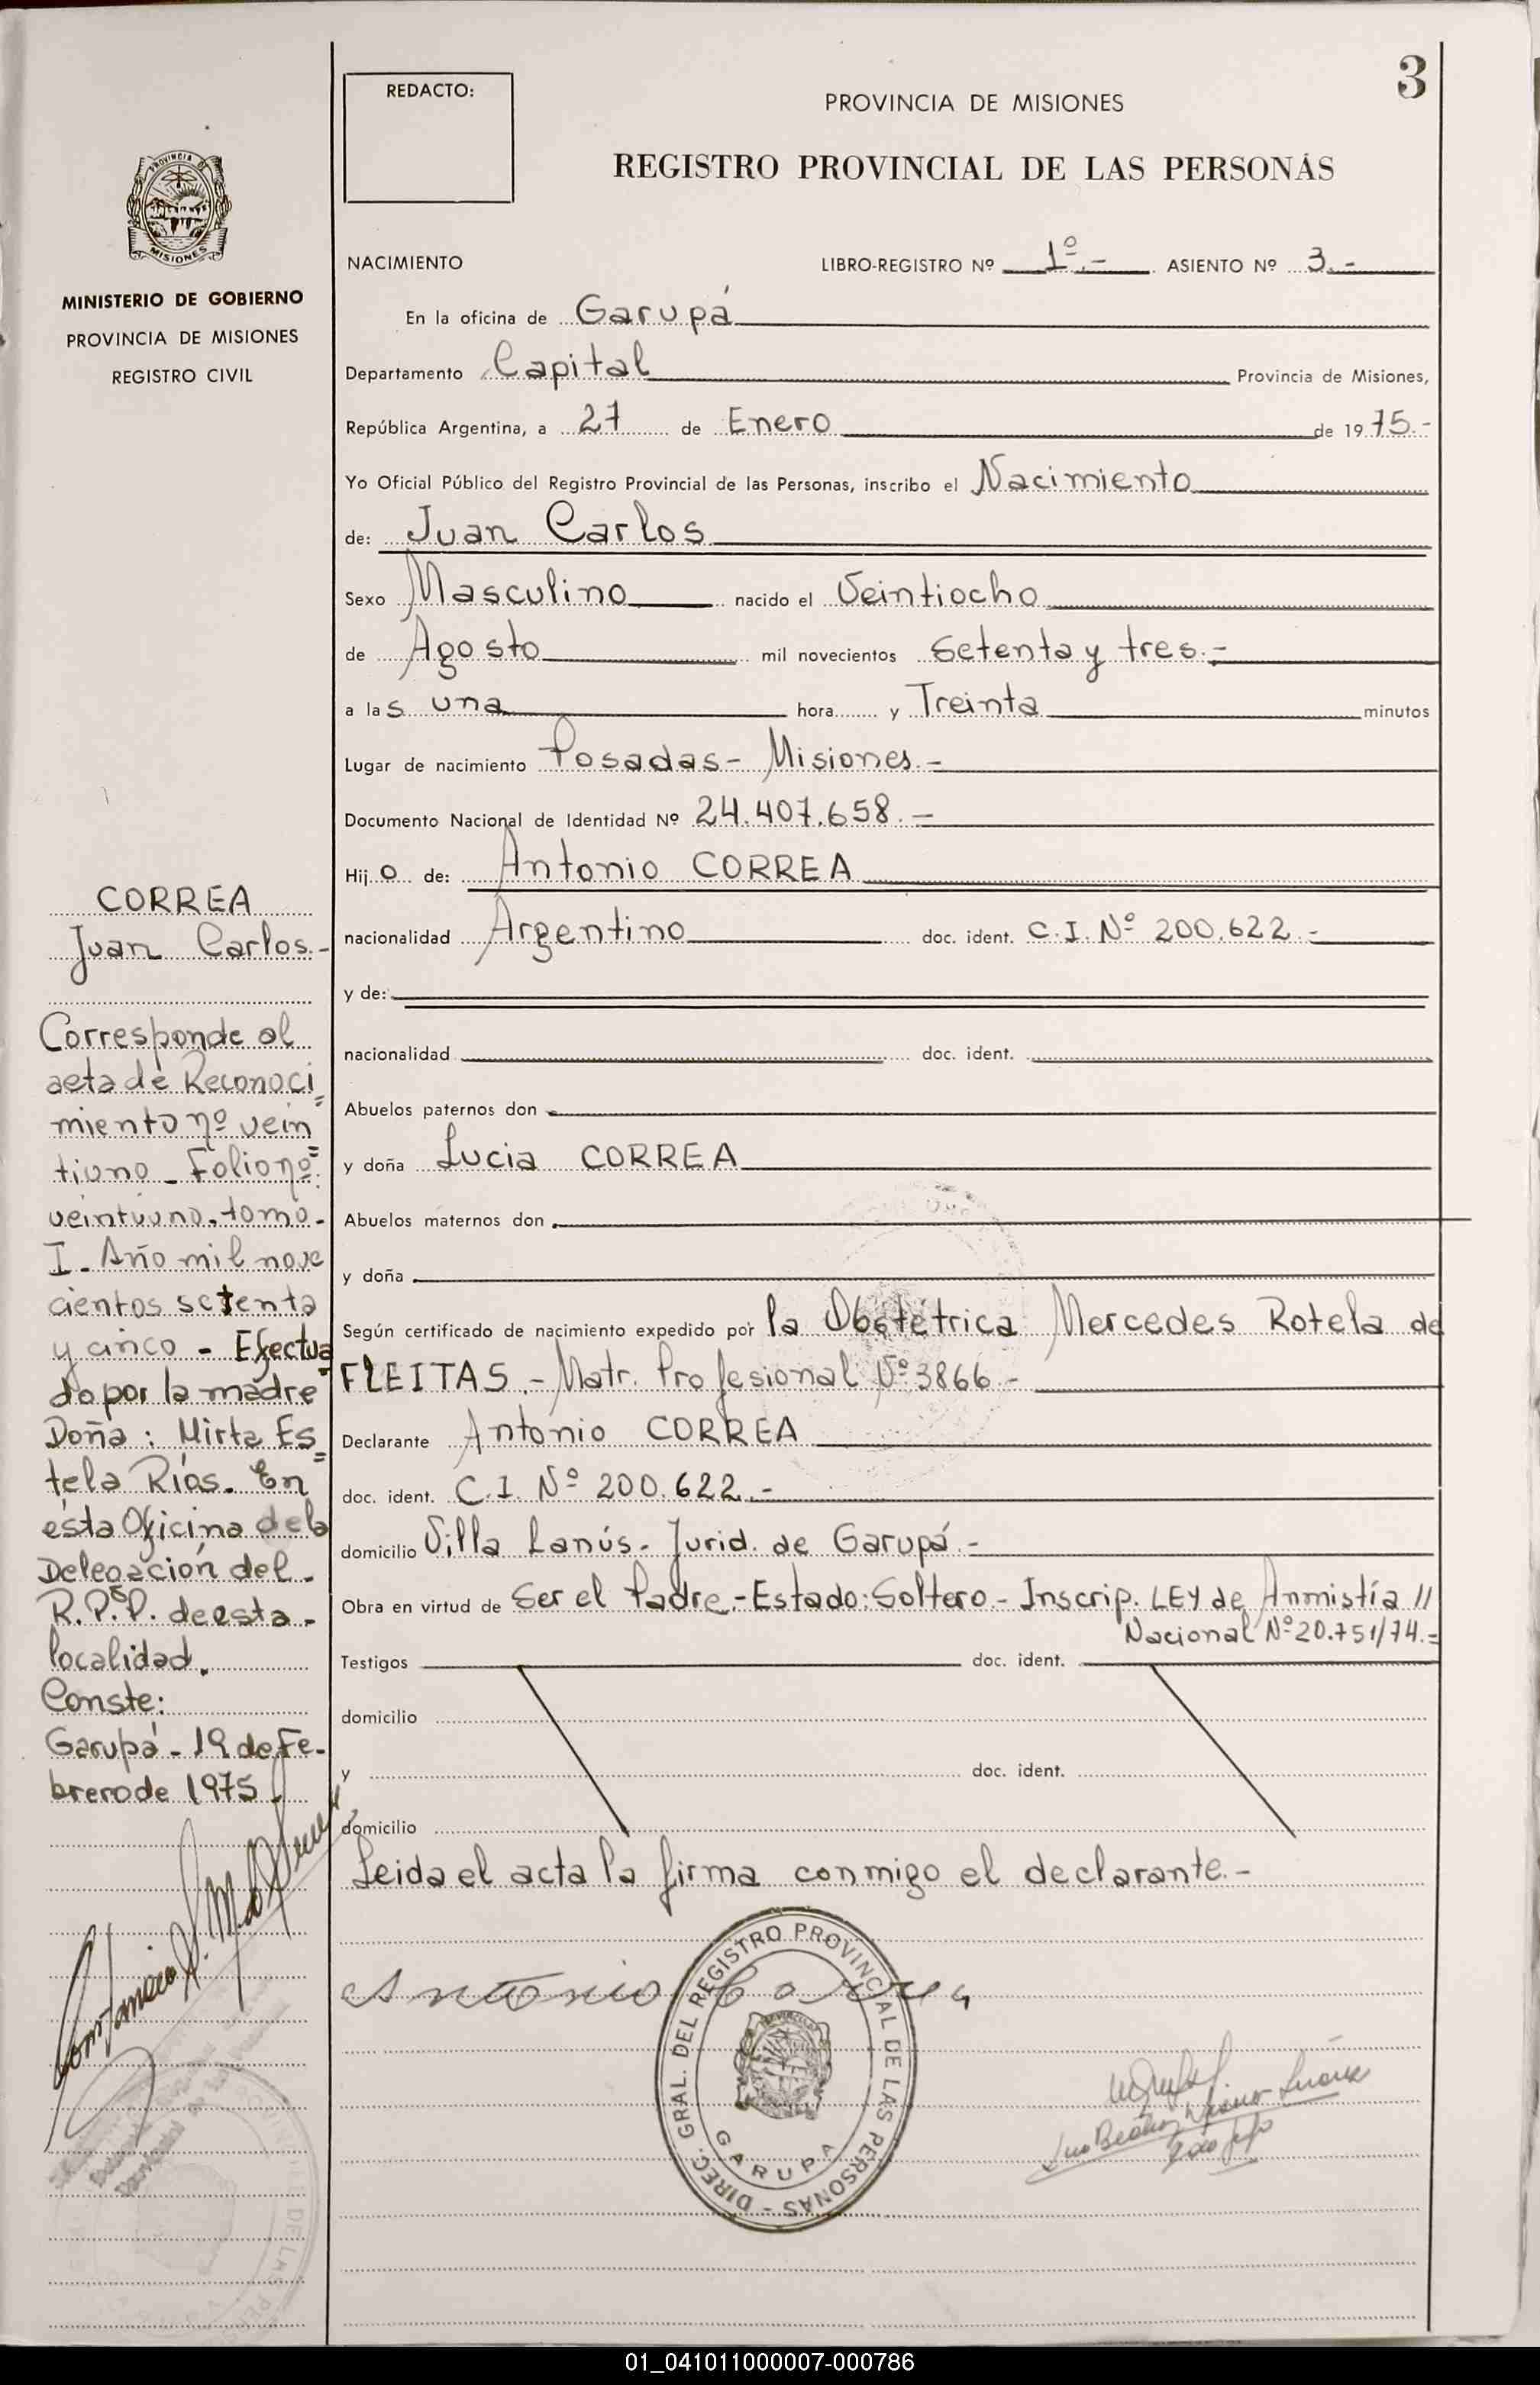 3
REDACTO:
PROVINCIA DE MISIONES
REGISTRO PROVINCIAL DE LAS PERSONAS
PROVINCIA DE
MISIONES
MINISTERIO DE GOBIERNO
PROVINCIA DE MISIONES
REGISTRO CIVIL
NACIMIENTO LIBRO-REGISTRO Nº 1º.- ASIENTO Nº 3.-
En la oficina de Garupá
Departamento Capital Provincia de Misiones,
República Argentina, a 27 de Enero de 1975.-
Yo Oficial Público del Registro Provincial de las Personas, inscribo el Nacimiento
de: Juan Carlos
Sexo Masculino nacido el Veintiocho
de Agosto mil novecientos Setenta y tres.-
a las una hora y Treinta minutos
Lugar de nacimiento Posadas- Misiones.-
Documento Nacional de Identidad Nº 24.407.658.-
Hijo de: Antonio CORREA
nacionalidad Argentino doc. ident. C.I. Nº 200.622.-
y de:
nacionalidad doc. ident.
Abuelos paternos don
y doña Lucia CORREA
Abuelos maternos don
y doña
Según certificado de nacimiento expedido por la Obstétrica Mercedes Rotela de
FLEITAS.- Matr. Profesional Nº 3866.-
Declarante Antonio CORREA
doc. ident. C.I. Nº 200.622.-
domicilio Villa Lanús- Jurid. de Garupá.-
Obra en virtud de Ser el Padre.-Estado: Soltero.- Inscrip. LEY de Anmistía //
Nacional Nº 20.751/74.=
Testigos doc. ident.
domicilio
y doc. ident.
domicilio
Leida el acta la firma conmigo el declarante.-
Antonio Correa
DIREC. GRAL. DEL REGISTRO PROVINCIAL DE LAS PERSONAS -
GARUPA
CORREA
Juan Carlos.-
Corresponde al
acta de Reconoci=
miento nº vein=
tiuno - Folio nº:
veintiuno. tomo.-
I - Año mil nove
cientos setenta
y cinco - Efectua-
do por la madre
Doña: Mirta Es=
tela Ríos. En
ésta Oficina de la
Delegación del-
R.P.P. de esta-
localidad.
Conste:
Garupá - 19 de Fe-
brero de 1975
01_041011000007-000786